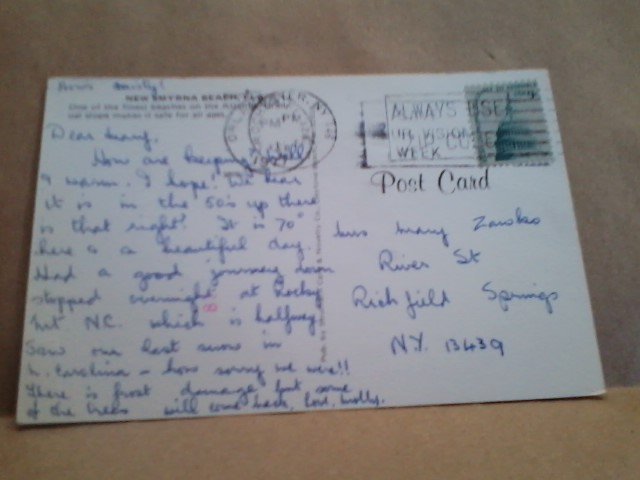 NEW SMYRNA BEACH, FLA
One of the finest beaches on the Atlantic
makes it safe for all ages.
Dear Mary,
How are keeping? Well
& warm. I hope. We hear
it is in the '50's up there
is that right? It is 70°
here & a beautiful day.
Had a good journey down
stopped overnight at Rocky
Mt N.C. which is halfway.
Saw our last snow in
N. Carolina - how sorry we were!!
There is frost damage but some
of the trees will come back, love, Molly.
PM
ALWAYS USE
WEEK
Post Card
Miss Mary
River St
Richfield Springs
N.Y. 13439
8